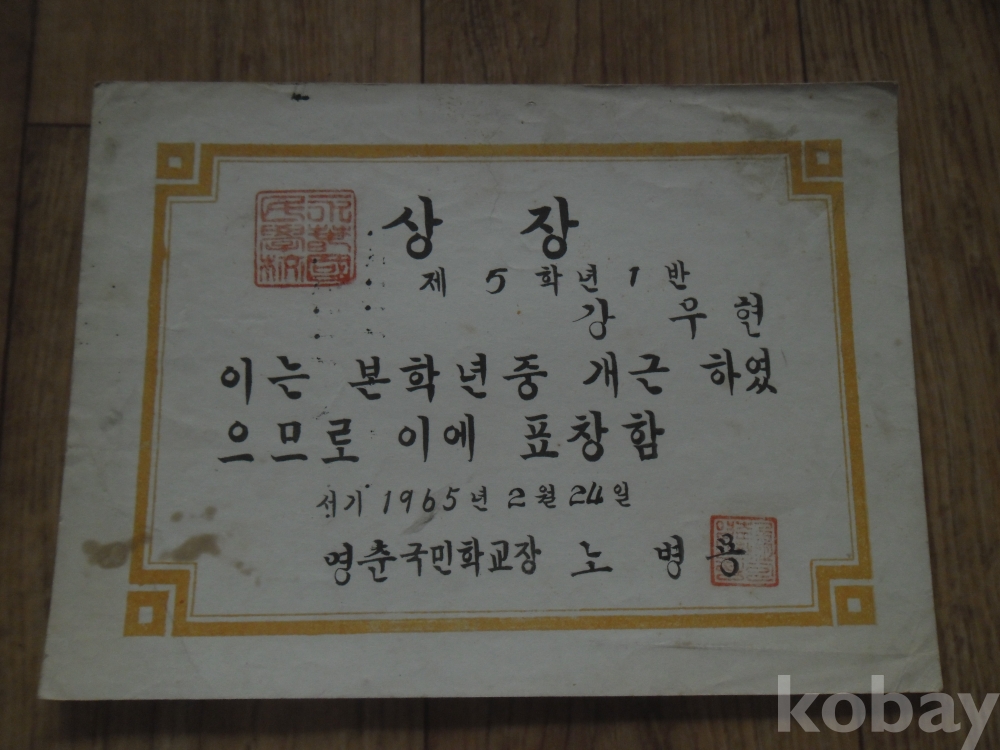 상 장
제 5학년 1반
강 우 현
이는 본학년중 개근 하였
으므로 이에 표창함
서기 1965년 2월 24일
영춘국민학교장 노 병 용
kobay